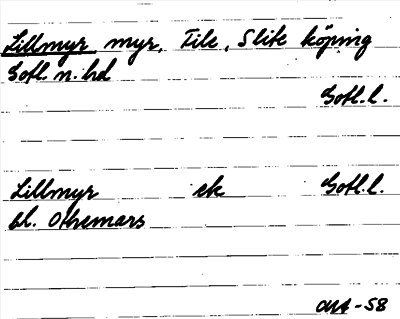 Lillmyr myr, Tile, Slite köping
Gotl. n. hd
Gotl. l.
Lillmyr ek Gotl. l.
bl. Othemars
-58